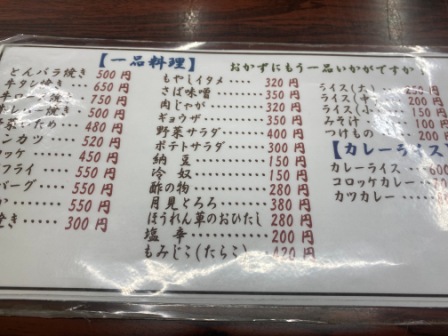 【一品料理】
おかずにもう一品いかがですか
とんバラ焼き 500円
牛タン焼き 650円
750円
500円
480円
ンカツ 520円
ロッケ 450円
フライ 550円
バーグ 550円
550円
き 300円
もやしイタメ 320円
さば味噌 350円
肉じゃが 320円
ギョウザ 350円
野菜サラダ 400円
ポテトサラダ 300円
納豆 150円
冷奴 150円
酢の物 280円
月見とろろ 380円
ほうれん草のおひたし 280円
塩辛 200円
もみじこ(たらこ) 420円
ライス(大)
ライス(中) 200円
ライス(小) 150円
みそ汁 100円
つけもの 200円
【カレーライス】
カレーライス 600
コロッケカレー
カツカレー